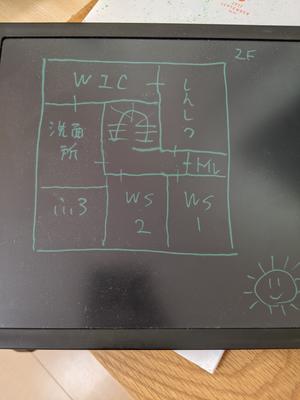 2F
WIC
しんしつ
洗面
所
ML
iii3
WS
2
WS
1